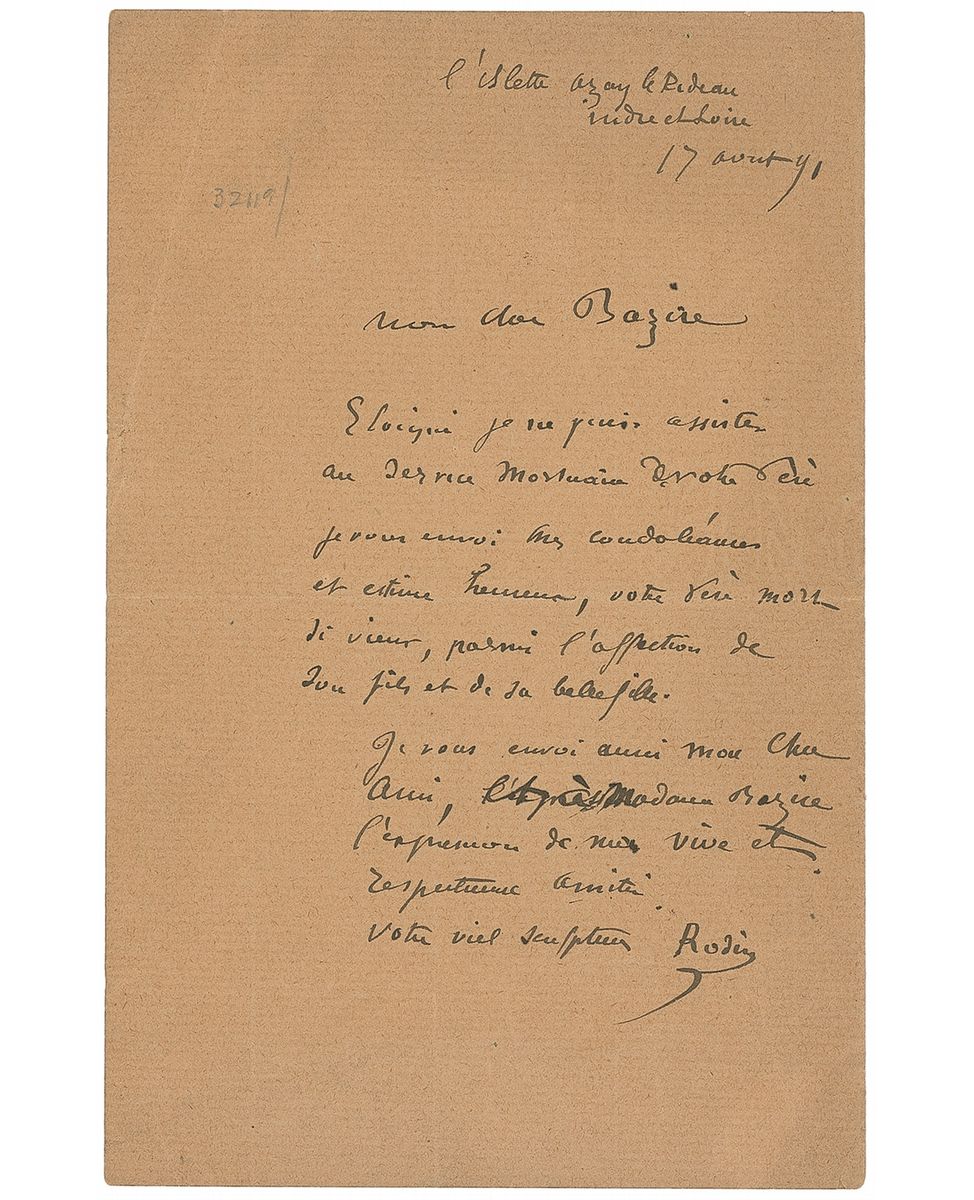 l'islette azay le Rideau
indre et Loire
17 aout 91
32119/
mon cher Bazire
Eloigné je ne puis assister
au Service Mortuaire de votre Père
je vous envoi mes condoléances
et estime heureux, votre Père mort
si vieux, parmi l'affection de
Son fils et de sa belle fille.
Je vous envoi aussi mon Cher
Ami, Madame Bazire
l'expression de ma vive et
respectueuse amitié.
Votre viel sculpteur Rodin